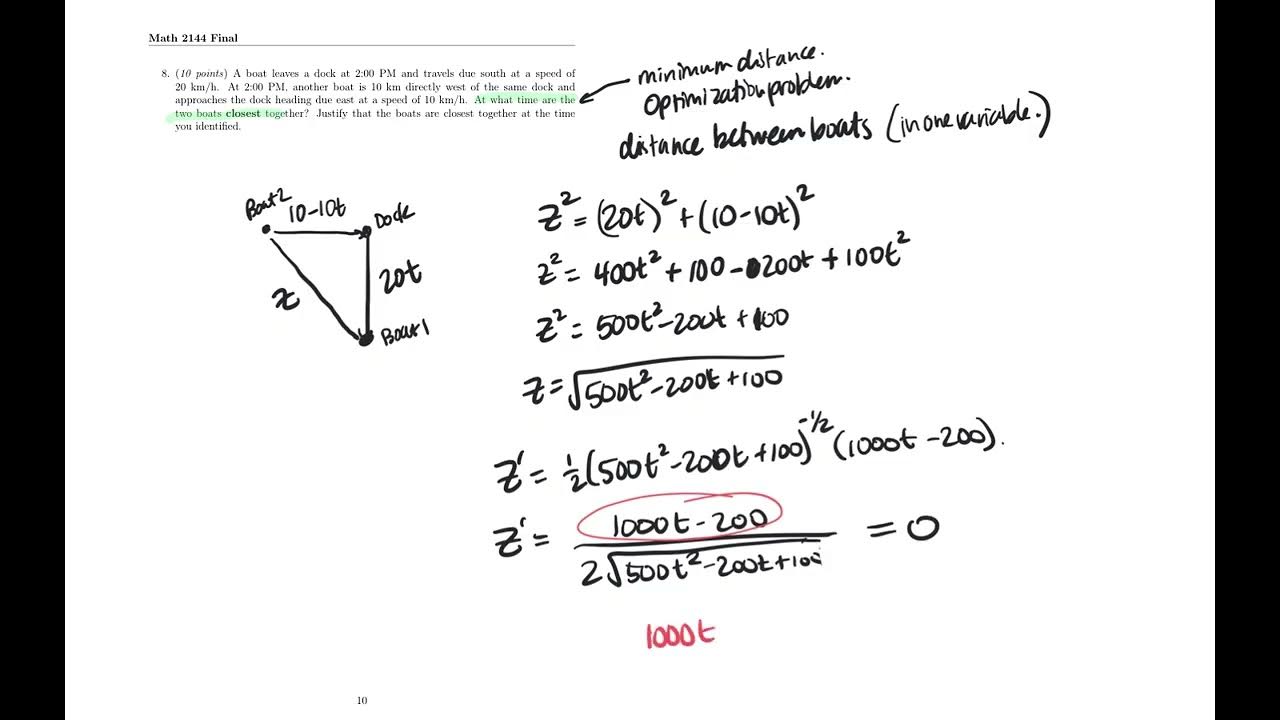 Math 2144 Final
8. (10 points) A boat leaves a dock at 2:00 PM and travels due south at a speed of
20 km/h. At 2:00 PM, another boat is 10 km directly west of the same dock and
approaches the dock heading due east at a speed of 10 km/h. At what time are the
two boats closest together? Justify that the boats are closest together at the time
you identified.
minimum distance.
optimization problem.
distance between boats (in one variable.)
Boat 2
10-10t
Dock
20t
z
Boat 1
z² = (20t)² + (10-10t)²
z² = 400t² + 100 - 200t + 100t²
z² = 500t² - 200t + 100
z = √500t² - 200t + 100
z' = ½(500t² - 200t + 100)^-1/2 (1000t - 200).
z' = 1000t - 200 / 2√500t² - 200t + 100 = 0
1000t
10